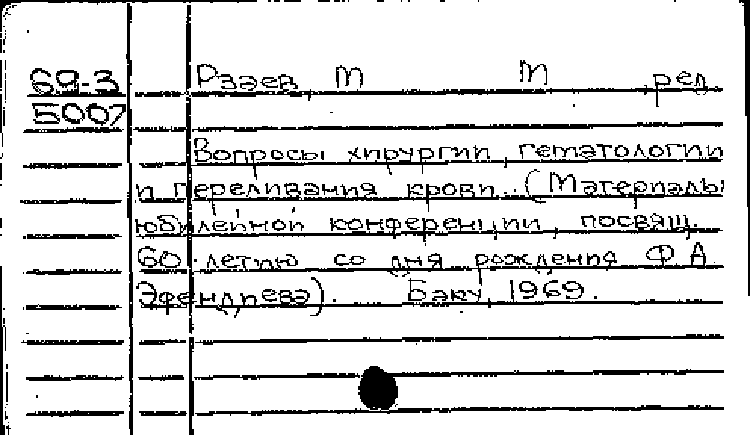 69-3 Рзаев, М М ред.
5007
Вопросы хирургии, гематологии
и переливания крови. (Материалы
юбилейной конференции, посвящ.
60-летию со дня рождения Ф А
Эфендиева). Баку, 1969.